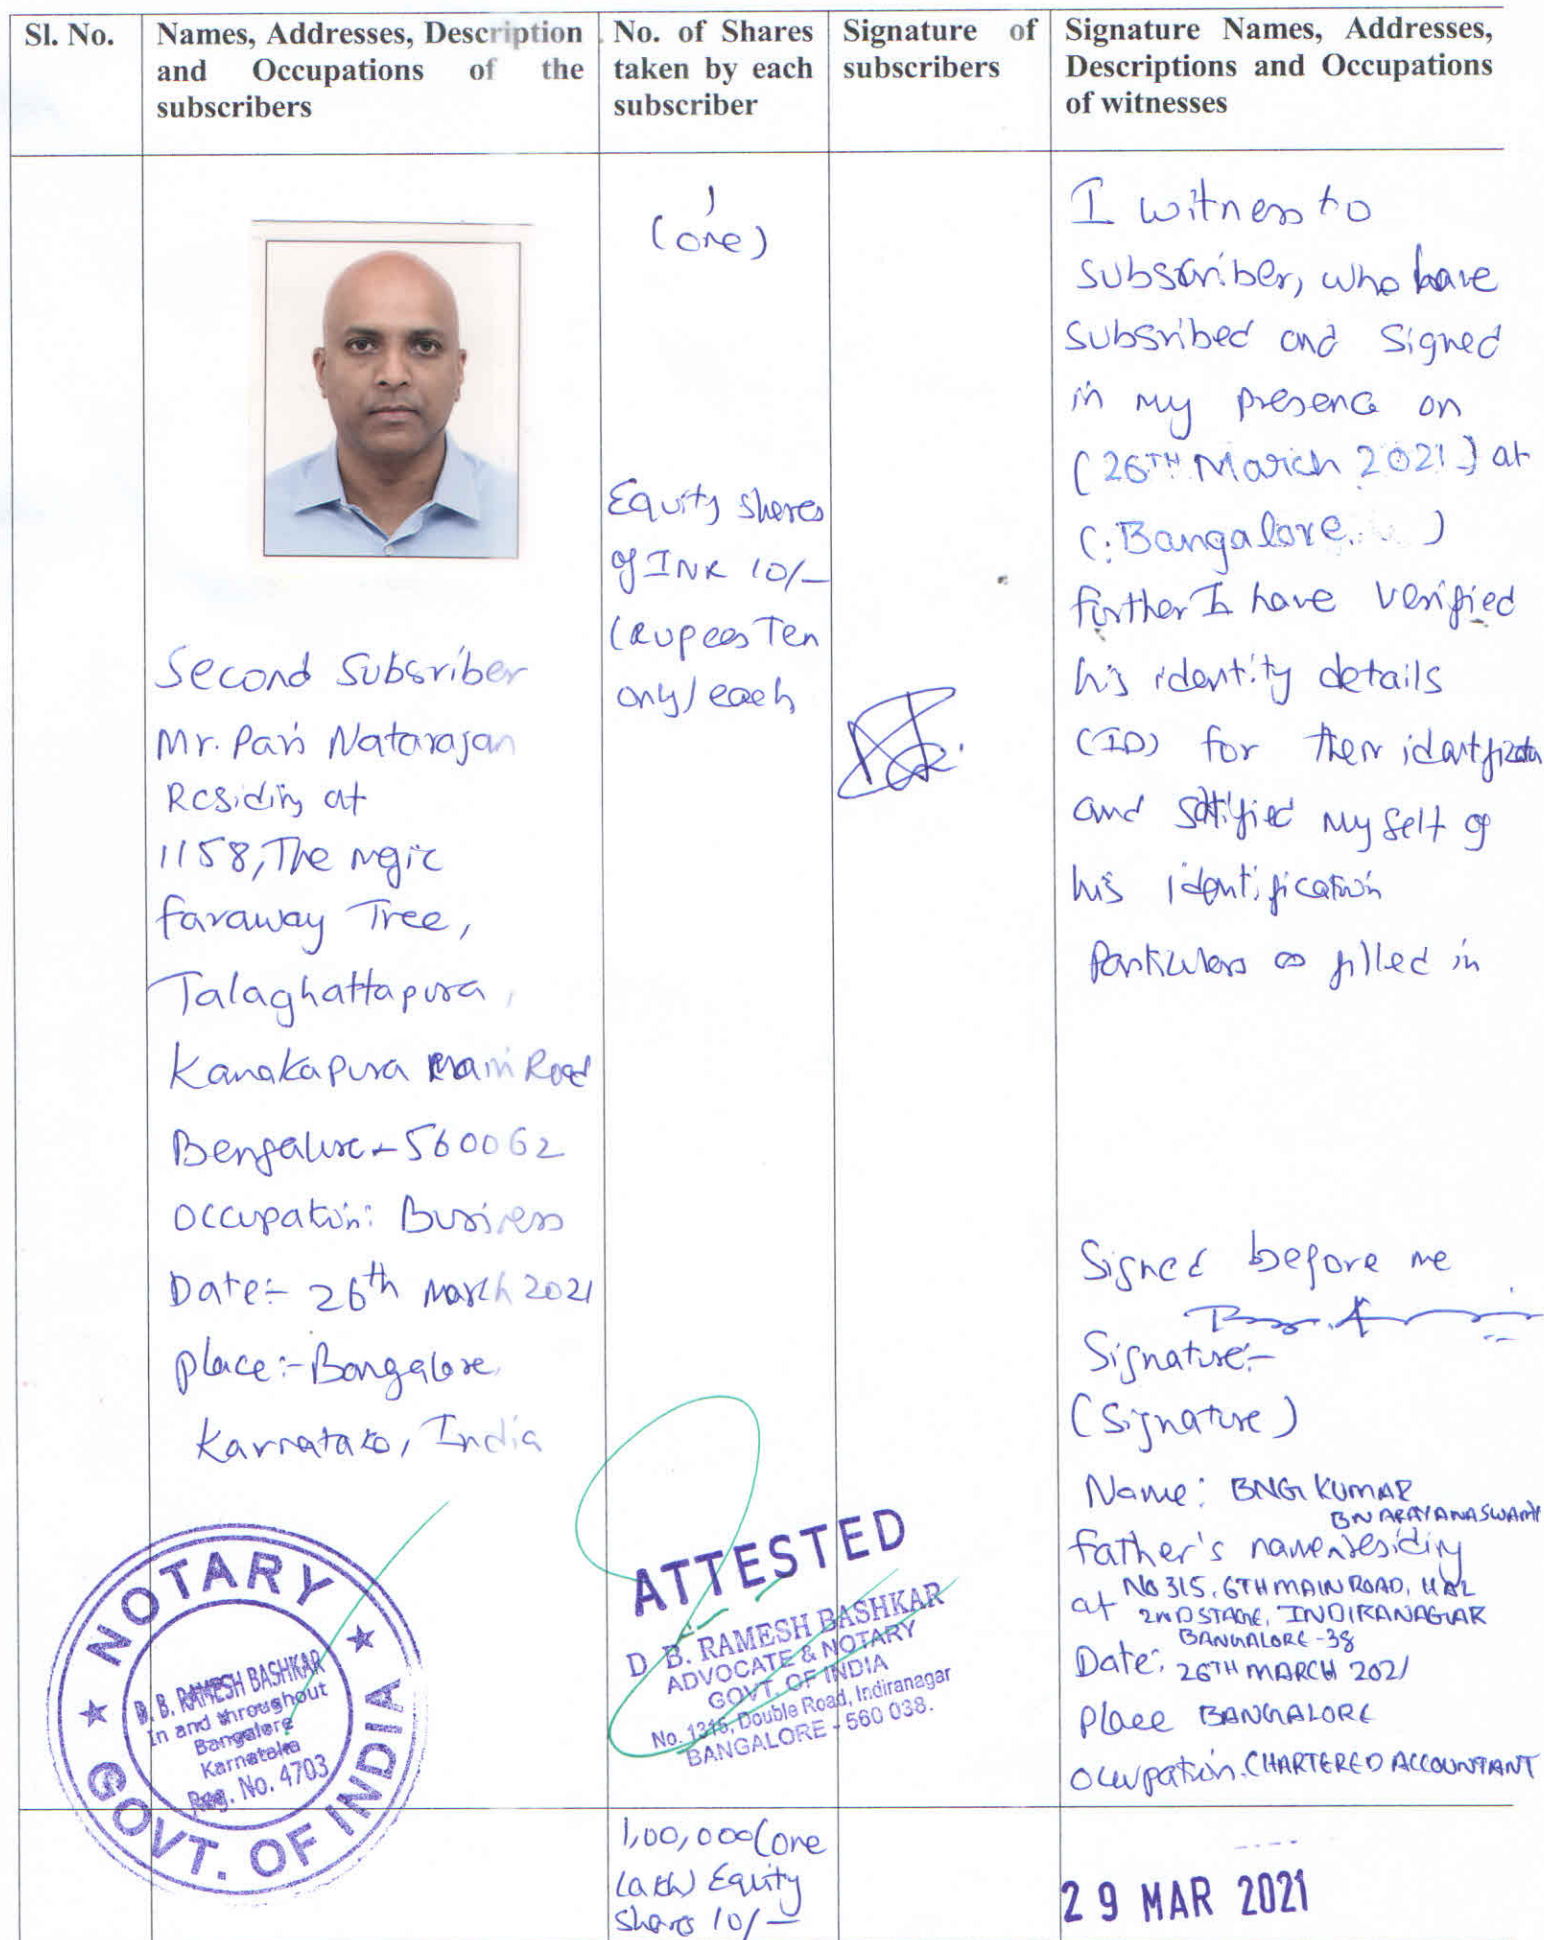 Sl. No.
Names, Addresses, Description
and Occupations of the
subscribers
No. of Shares
taken by each
subscriber
Signature of
subscribers
Signature Names, Addresses,
Descriptions and Occupations
of witnesses
Second Subsriber
Mr. Pari Natarajan
Residing at
1158, The mgic
faraway Tree,
Talaghattapura,
Kanakapura Main Road
Bengalure - 560062
Occupation: Business
Date:- 26th March 2021
place:- Bangalore,
Karnataka, India
1
(one)
Equity shares
of INR 10/-
(Rupees Ten
only) each
I witness to
subscriber, who have
subsribed and signed
in my presence on
(26TH March 2021) at
(Bangalore. )
further I have verified
his identity details
(ID) for their
and satified myself of
his identification
Particulars as filled in
Signed before me
Signature:-
(Signature)
Name: BNG KUMAR
BNARAYANASWAMY
father's name residing
at No 315, 6TH MAIN ROAD, HAL
2ND STAGE, INDIRANAGAR
BANGALORE - 38
Date: 26TH MARCH 2021
place BANGALORE
Occupation. CHARTERED ACCOUNTANT
NOTARY
GOVT. OF INDIA
D. B. RAMESH BASHKAR
In and throughout
Bangalore
Karnataka
Reg. No. 4703
ATTESTED
D. B. RAMESH BASHKAR
ADVOCATE & NOTARY
GOVT. OF INDIA
No. 1316, Double Road, Indiranagar
BANGALORE - 560 038.
1,00,000 (one
Lakh) Equity
shares 10/-
29 MAR 2021